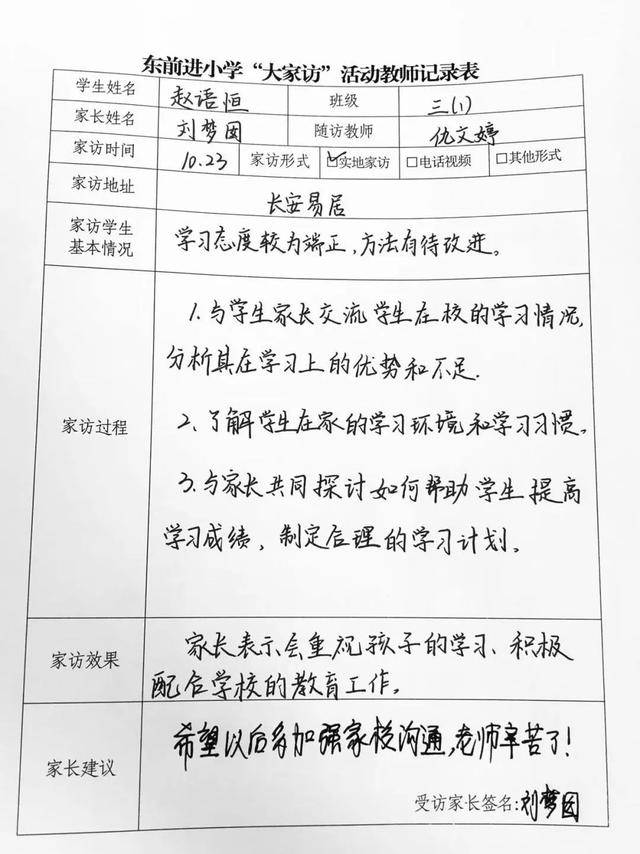 东前进小学“大家访”活动教师记录表
学生姓名 赵语恒 班级 三(1)
家长姓名 刘梦园 随访教师 仇文婷
家访时间 10.23 家访形式 ☑实地家访 □电话视频 □其他形式
家访地址 长安易居
家访学生基本情况 学习态度较为端正,方法有待改进。
家访过程
1.与学生家长交流学生在校的学习情况,
分析其在学习上的优势和不足.
2、了解学生在家的学习环境和学习习惯。
3.与家长共同探讨如何帮助学生提高
学习成绩,制定合理的学习计划。
家访效果
家长表示会重视孩子的学习、积极
配合学校的教育工作。
家长建议
希望以后多加强家校沟通,老师辛苦了!
受访家长签名:刘梦园